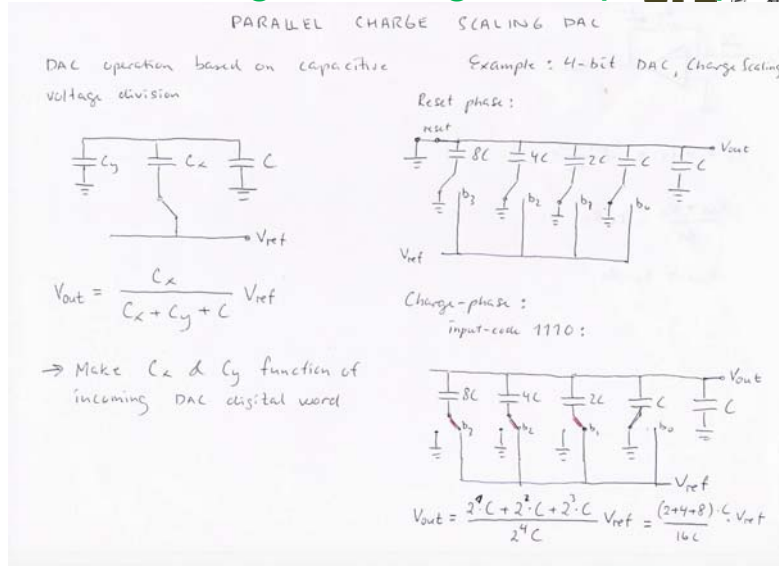 PARALLEL CHARGE SCALING DAC
DAC operation based on capacitive
voltage division
Cy
Cx
C
Vref
Vout = Cx / (Cx + Cy + C) Vref
→ Make Cx & Cy function of
incoming DAC digital word
Example : 4-bit DAC, Charge Scaling
Reset phase :
reset
8C 4C 2C C C
Vout
b3 b2 b0
Vref
Charge-phase :
input-code 1110 :
Vout
8C 4C 2C C C
b3 b2 b1 b0
Vref
Vout = (C + 2²·C + 2³·C) / 2⁴C Vref = (2+4+8)·C / 16C · Vref